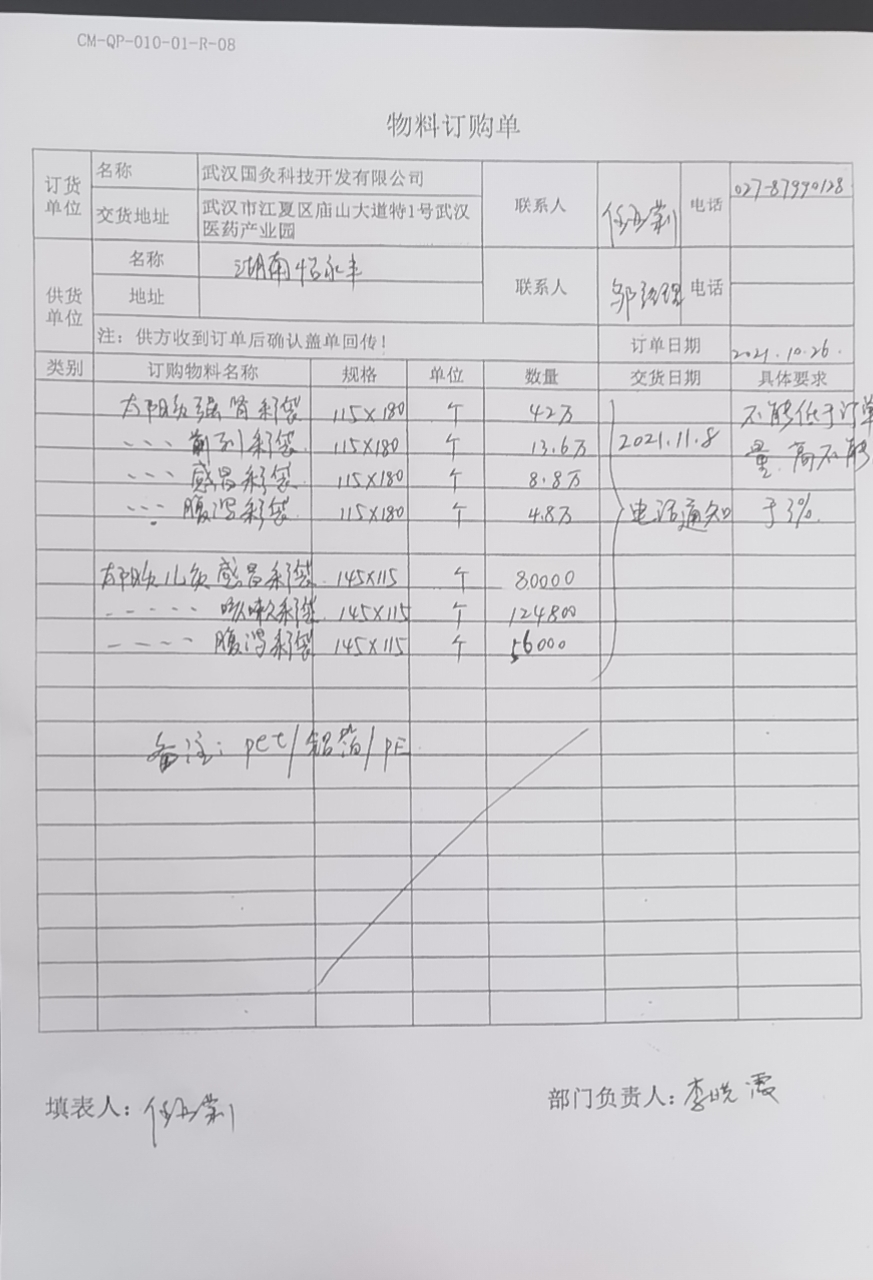 CM-QP-010-01-R-08
物料订购单
订货单位 名称 武汉国灸科技开发有限公司 联系人 电话 027-87990128
交货地址 武汉市江夏区庙山大道特1号武汉
医药产业园
供货单位 名称 湖南恒永丰 联系人 邹经理 电话
地址
注：供方收到订单后确认盖单回传！ 订单日期 2021.10.26.
类别 订购物料名称 规格 单位 数量 交货日期 具体要求
太阳灸强肾彩袋 115X180 个 42万 不能低于订单
、、、前列彩袋 115X180 个 13.6万 2021.11.8 量.高不能
、、、感冒彩袋 115X180 个 8.8万
、、、腹泻彩袋 115X180 个 4.8万 电话通知 于3%.
太阳灸儿灸感冒彩袋 145X115 个 80000
- - - - - 咳嗽彩袋 145X115 个 124800
- - - - 腹泻彩袋 145X115 个 56000
备注：pet/铝箔/PE
填表人： 部门负责人：李晓霞